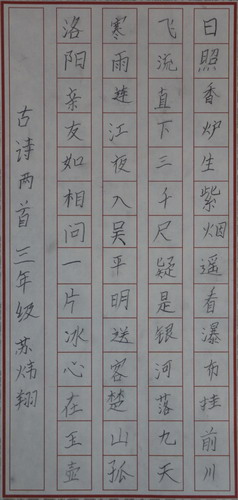 日照香炉生紫烟遥看瀑布挂前川
飞流直下三千尺疑是银河落九天
寒雨连江夜入吴平明送客楚山孤
洛阳亲友如相问一片冰心在玉壶
古诗两首 三年级 苏炜翔